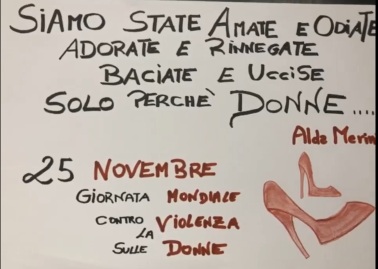 SIAMO STATE AMATE E ODIATE
ADORATE E RINNEGATE
BACIATE E UCCISE
SOLO PERCHÈ DONNE....
Alda Merin
25 NOVEMBRE
GIORNATA MONDIALE
CONTRO LA VIOLENZA
SULLE DONNE